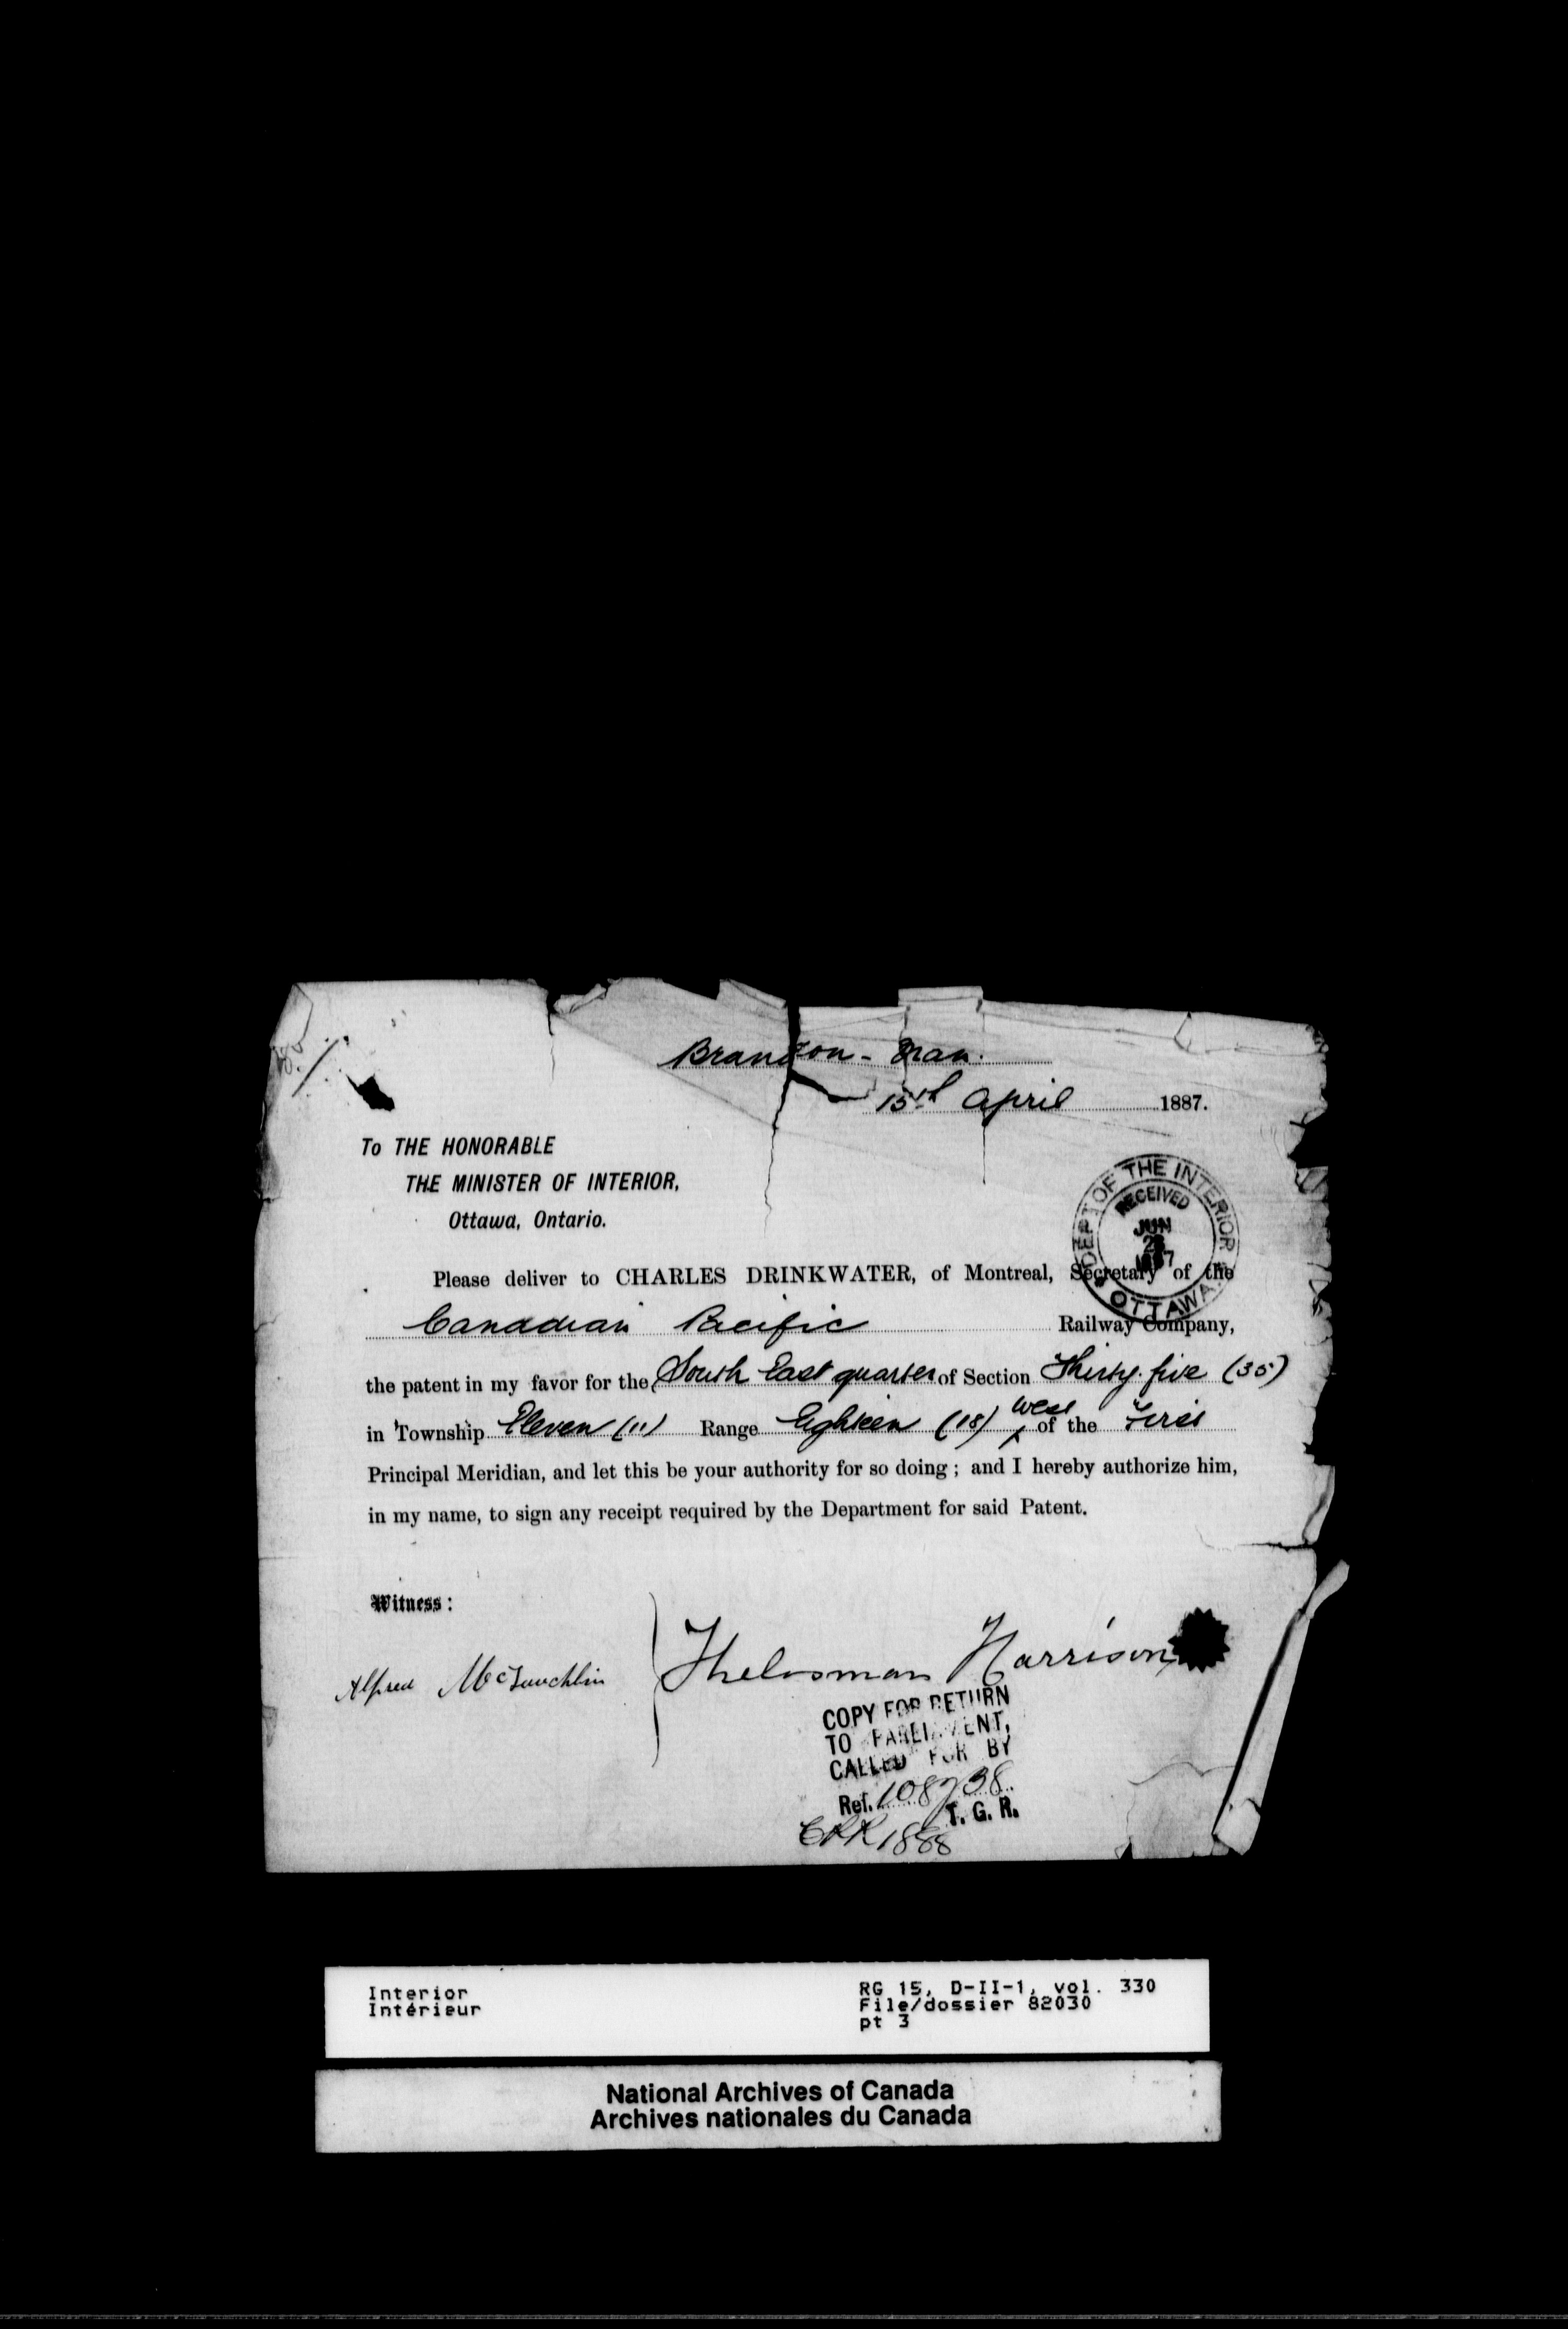 Brandon - Man.
15th April 1887.
To THE HONORABLE
THE MINISTER OF INTERIOR,
Ottawa, Ontario.
DEPT OF THE INTERIOR
RECEIVED
JUN
1887
OTTAWA
Please deliver to CHARLES DRINKWATER, of Montreal, Secretary of the
Canadian Pacific Railway Company,
the patent in my favor for the South East quarter of Section Thirty-five (35)
in Township Eleven (11) Range Eighteen (18) West of the First
Principal Meridian, and let this be your authority for so doing ; and I hereby authorize him,
in my name, to sign any receipt required by the Department for said Patent.
Witness :
Alfred McLauchlin
Harrison
COPY FOR RETURN
TO PARLIAMENT,
CALLED FOR BY
Ref. 108738
T. G. R.
1888
Interior
Intérieur
RG 15, D-II-1, vol. 330
File/dossier 82030
pt 3
National Archives of Canada
Archives nationales du Canada